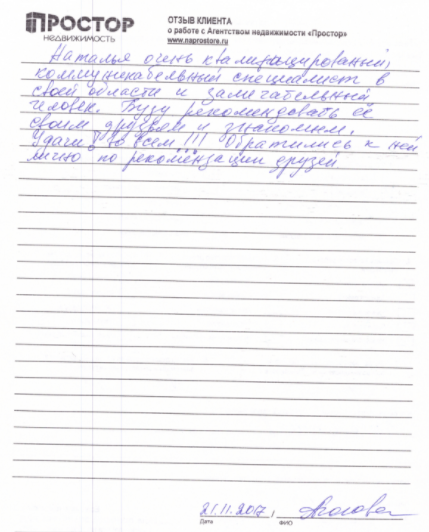 ПРОСТОР
НЕДВИЖИМОСТЬ
ОТЗЫВ КЛИЕНТА
о работе с Агентством недвижимости «Простор»
www.naprostore.ru
Наталья очень квалифицированный,
коммуникабельный специалист в
своей области и замечательный
человек. Буду рекомендовать её
своим друзьям и знакомым.
Удачи во всем!!! Обратились к ней
лично по рекомендации друзей
21.11.2017,
Дата ФИО